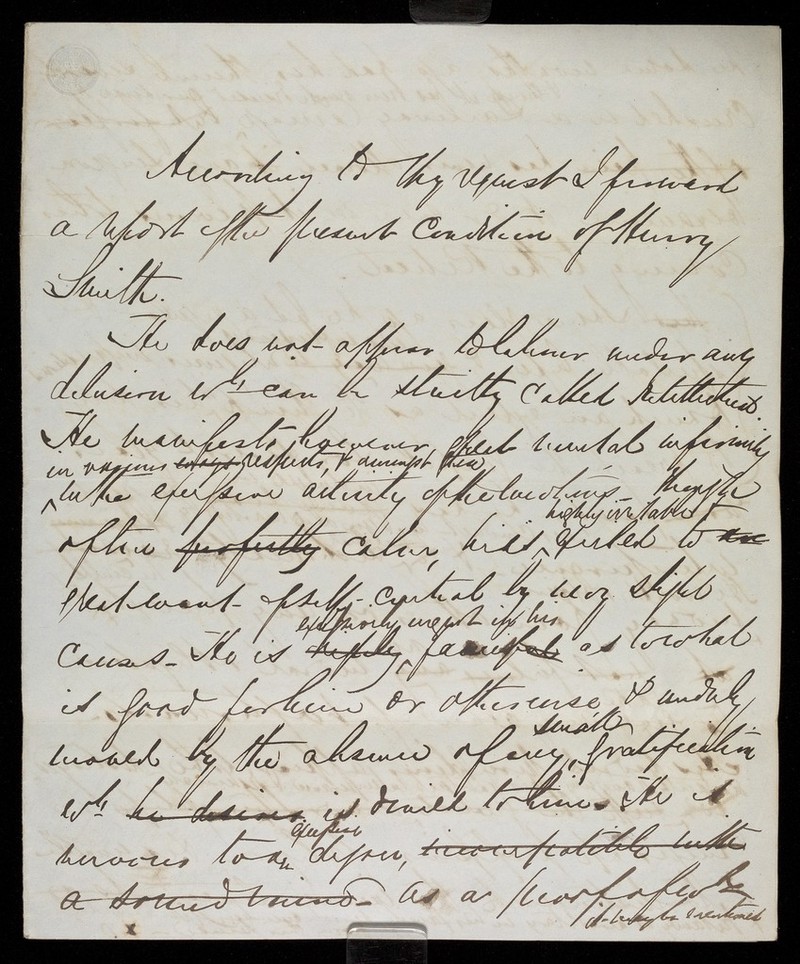 According to thy request I forward
a report of the present Condition of Henry
Smith.
He does not appear to labour under any
delusion wh. can be strictly called Intellectual.
He manifests however great mental infirmity
in various ways respects, & amongst these,
in the excessive activity of the emotions - though
often perfectly calm, he is highly irritable &
great want of self-control by very slight
excessively urgent in his
causes - He is as to what
is good for him or otherwise & unduly
moved by the absence of any small gratification
wh. he desires is denied to him. He is
nervous to an degree, incompatible with
a sound mind - As a proof of wh.
it may be mentioned